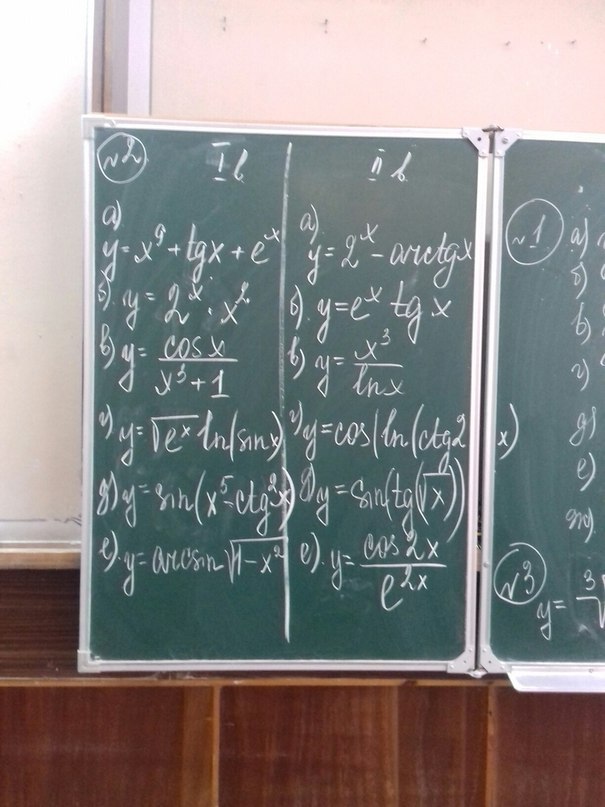 №2
I в
а)
y = x⁹ + tg x + eˣ
б). y = 2ˣ · x²
в) y = cos x / (x³ + 1)
г) y = √eˣ ln(sin x)
д) y = sin(x⁵ - ctg²x)
е). y = arcsin √1 - x²
II в
а)
y = 2ˣ - arctg x
б). y = eˣ tg x
в) y = x³ / ln x
г) y = cos(ln(ctg 2x)
д) y = sin(tg(√x))
е). y = cos 2x / e²ˣ
№1
а)
б)
в)
г)
д)
е)
ж)
№3
y = ³√